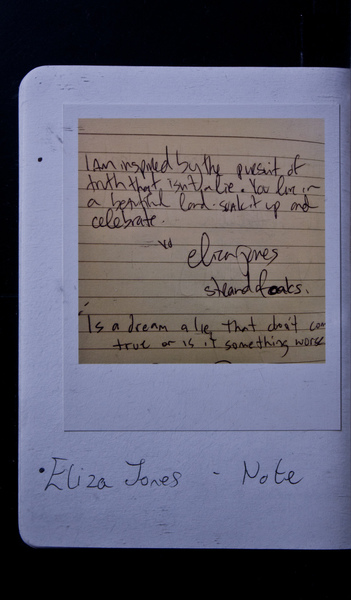 I Am inspired by the pursuit of
truth that isn't a lie. You live in
a beautiful land. soak it up and
celebrate.
eliza jones
steandfoaks.
Is a dream a lie that don't com
true or is it something worse
Eliza Jones - Note